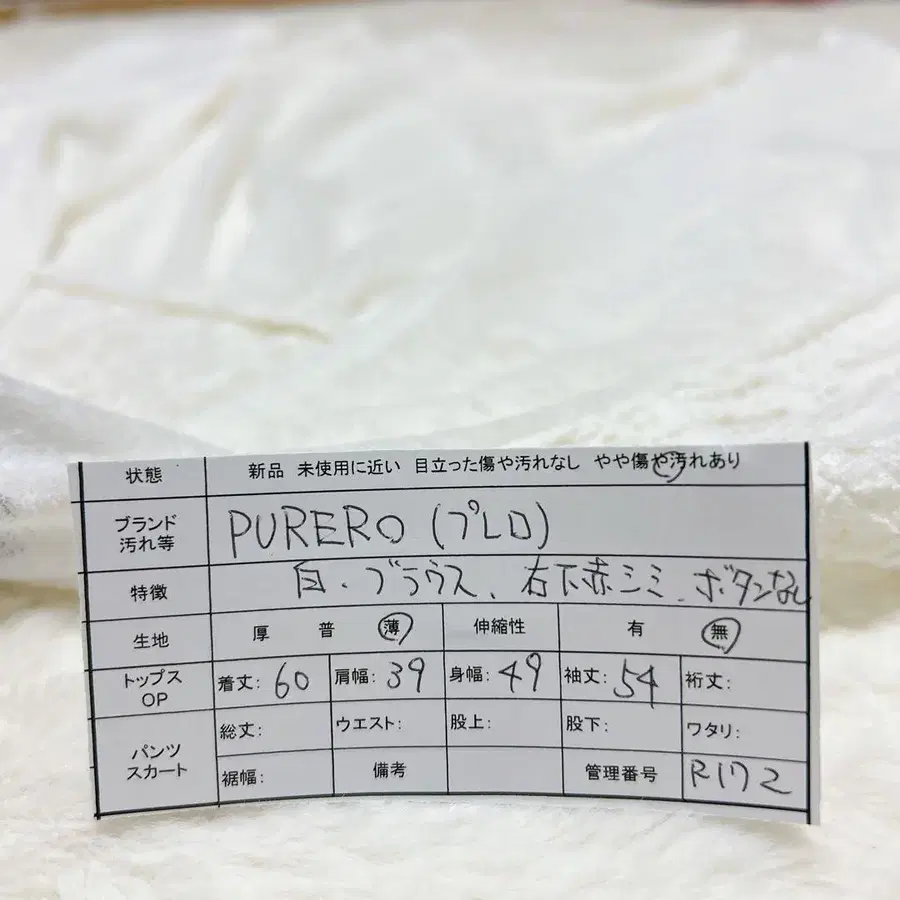 状態 新品 未使用に近い 目立った傷や汚れなし やや傷や汚れあり
ブランド PURERO(プレロ)
汚れ等
特徴 白・ブラウス、右下赤シミ、ボタンなし
生地 厚 普 薄 伸縮性 有 無
トップス 着丈: 60 肩幅: 39 身幅: 49 袖丈: 54 裄丈:
OP
総丈: ウエスト: 股上: 股下: ワタリ:
パンツ
スカート
裾幅: 備考 管理番号 R172